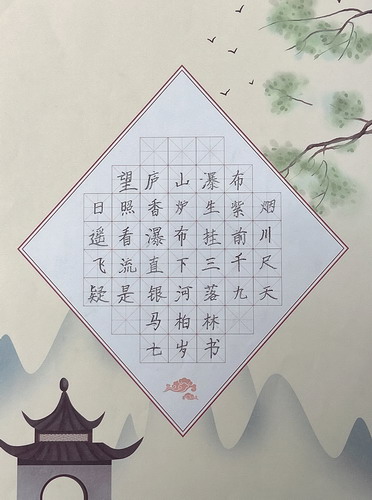 望庐山瀑布
日照香炉生紫烟
遥看瀑布挂前川
飞流直下三千尺
疑是银河落九天
马柏林
七岁书